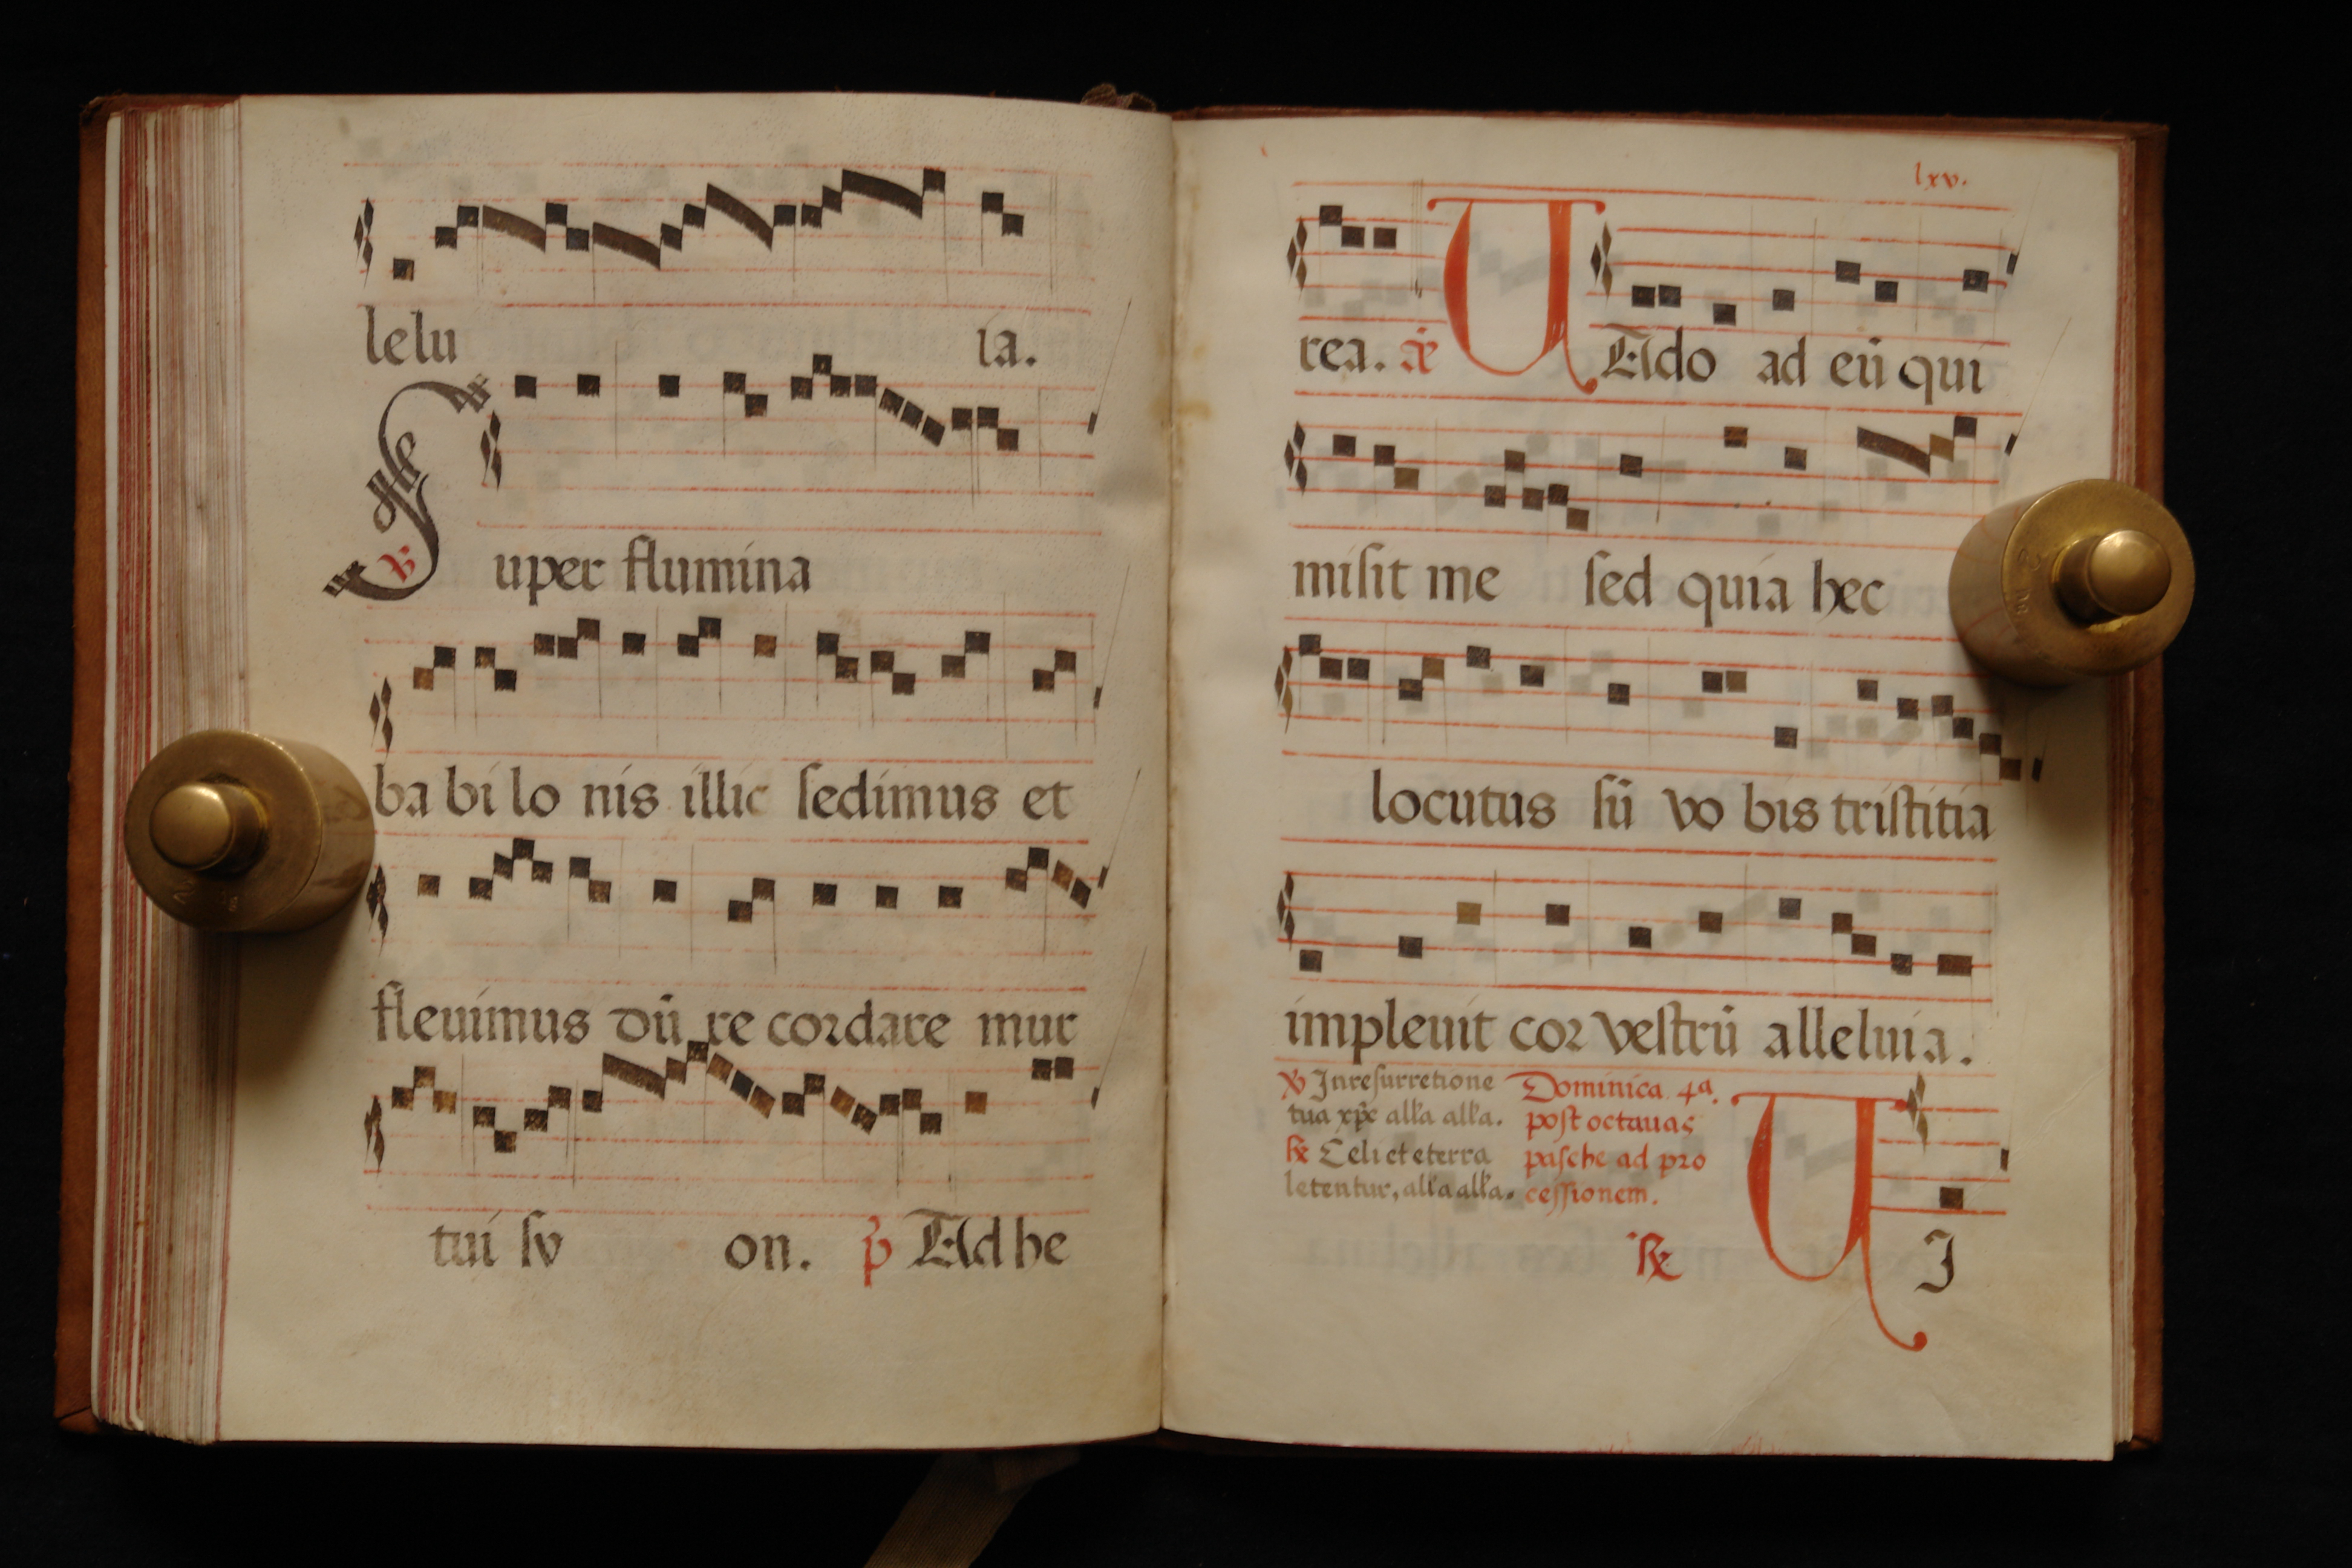 lelu ia.
℣ Super flumina
ba bi lo nis illic sedimus et
fleuimus dū re cordare mur
tui sy on. p̄ Ad he
lxv.
rea. VAdo ad eū qui
misit me sed quia hec
locutus sū vo bis tristitia
impleuit cor vestrū alleluia.
℣ In resurretione
tua xpe alla alla.
℟ Celi et eterra
letentur, alla alla.
Dominica 4ª.
post octauas
pasche ad pro
cessionem.
℟ VI